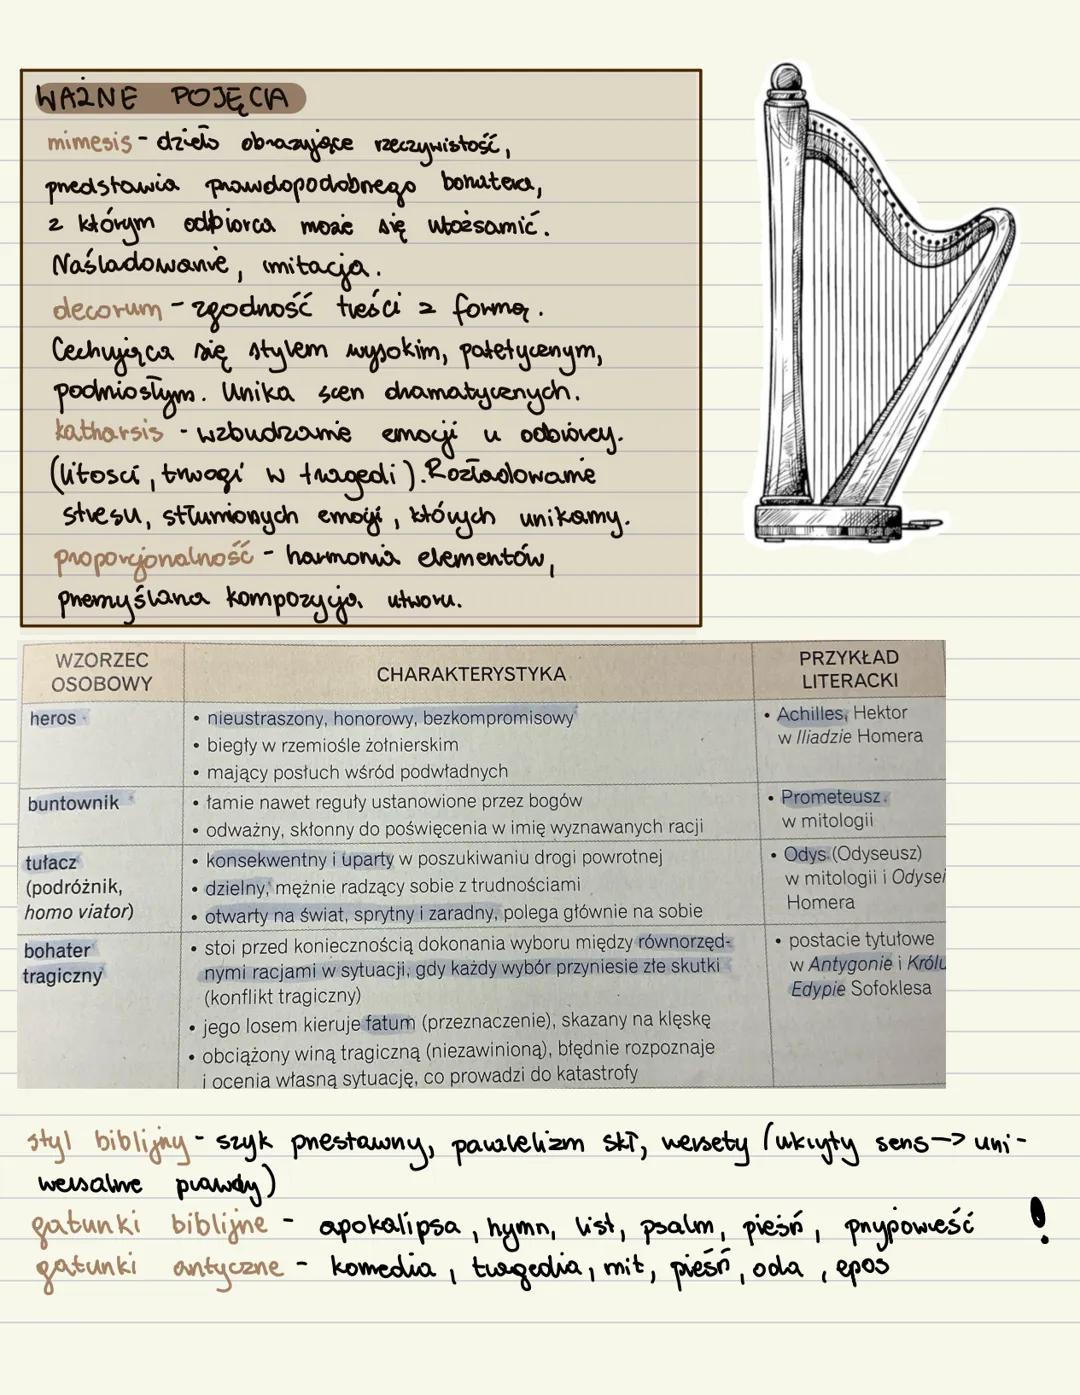 WAŻNE POJĘCIA
mimesis - dzieło obrazujące rzeczywistość,
przedstawia prawdopodobnego bohatera,
z którym odbiorca może się utożsamić.
Naśladowanie, imitacja.
decorum - zgodność treści z formą.
Cechująca się stylem wysokim, patetycznym,
podniosłym. Unika scen dramatycznych.
katharsis - wzbudzanie emocji u odbiorcy.
(litości, trwogi w tragedi). Rozładowanie
stresu, stłumionych emocji, których unikamy.
proporcjonalność - harmonia elementów,
przemyślana kompozycja utworu.
WZORZEC OSOBOWY
CHARAKTERYSTYKA
PRZYKŁAD LITERACKI
heros
• nieustraszony, honorowy, bezkompromisowy
• biegły w rzemiośle żołnierskim
• mający posłuch wśród podwładnych
• Achilles, Hektor
w Iliadzie Homera
buntownik
• łamie nawet reguły ustanowione przez bogów
• odważny, skłonny do poświęcenia w imię wyznawanych racji
• Prometeusz
w mitologii
tułacz
(podróżnik,
homo viator)
• konsekwentny i uparty w poszukiwaniu drogi powrotnej
• dzielny, mężnie radzący sobie z trudnościami
• otwarty na świat, sprytny i zaradny, polega głównie na sobie
• Odys (Odyseusz)
w mitologii i Odysei
Homera
bohater
tragiczny
• stoi przed koniecznością dokonania wyboru między równorzęd-
nymi racjami w sytuacji, gdy każdy wybór przyniesie złe skutki
(konflikt tragiczny)
• jego losem kieruje fatum (przeznaczenie), skazany na klęskę
• obciążony winą tragiczną (niezawinioną), błędnie rozpoznaje
i ocenia własną sytuację, co prowadzi do katastrofy
• postacie tytułowe
w Antygonie i Królu
Edypie Sofoklesa
styl biblijny - szyk przestawny, paralelizm skł, wersety (ukryty sens -> uni-
wersalne prawdy)
gatunki biblijne - apokalipsa, hymn, list, psalm, pieśń, przypowieść !
gatunki antyczne - komedia, tragedia, mit, pieśń, oda, epos